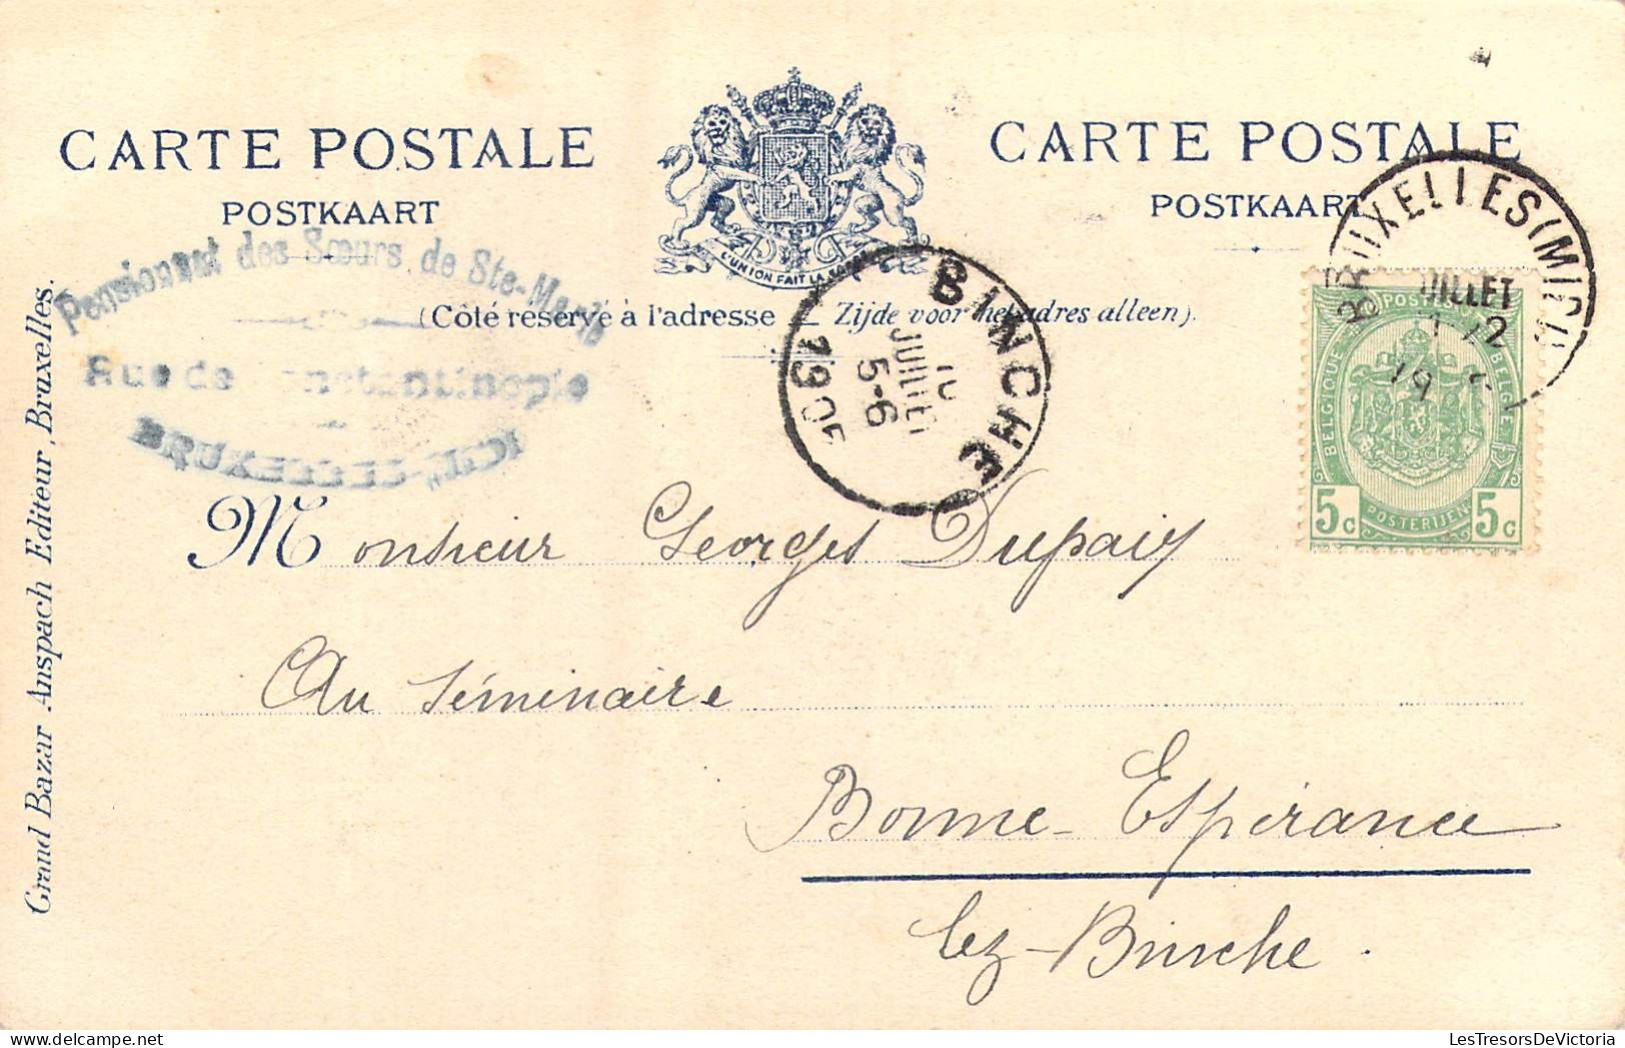 CARTE POSTALE
POSTKAART
CARTE POSTALE
POSTKAART
L'UNION FAIT LA
Pensionnat des Sœurs de Ste-Marie
Rue de Constantinople
BRUXELLES
(Côté réservé à l'adresse — Zijde voor het adres alleen).
BINCHE
10
JUILLET
5-6
1905
BRUXELLES (MIDI)
JUILLET
12
19
POSTES
BELGIQUE
BELGIË
5c
POSTERIJEN
5c
Monsieur Georges Dupaix
Au Séminaire
Bonne-Espérance
lez-Binche.
Grand Bazar Anspach Editeur, Bruxelles.
LesTresorsDeVictoria